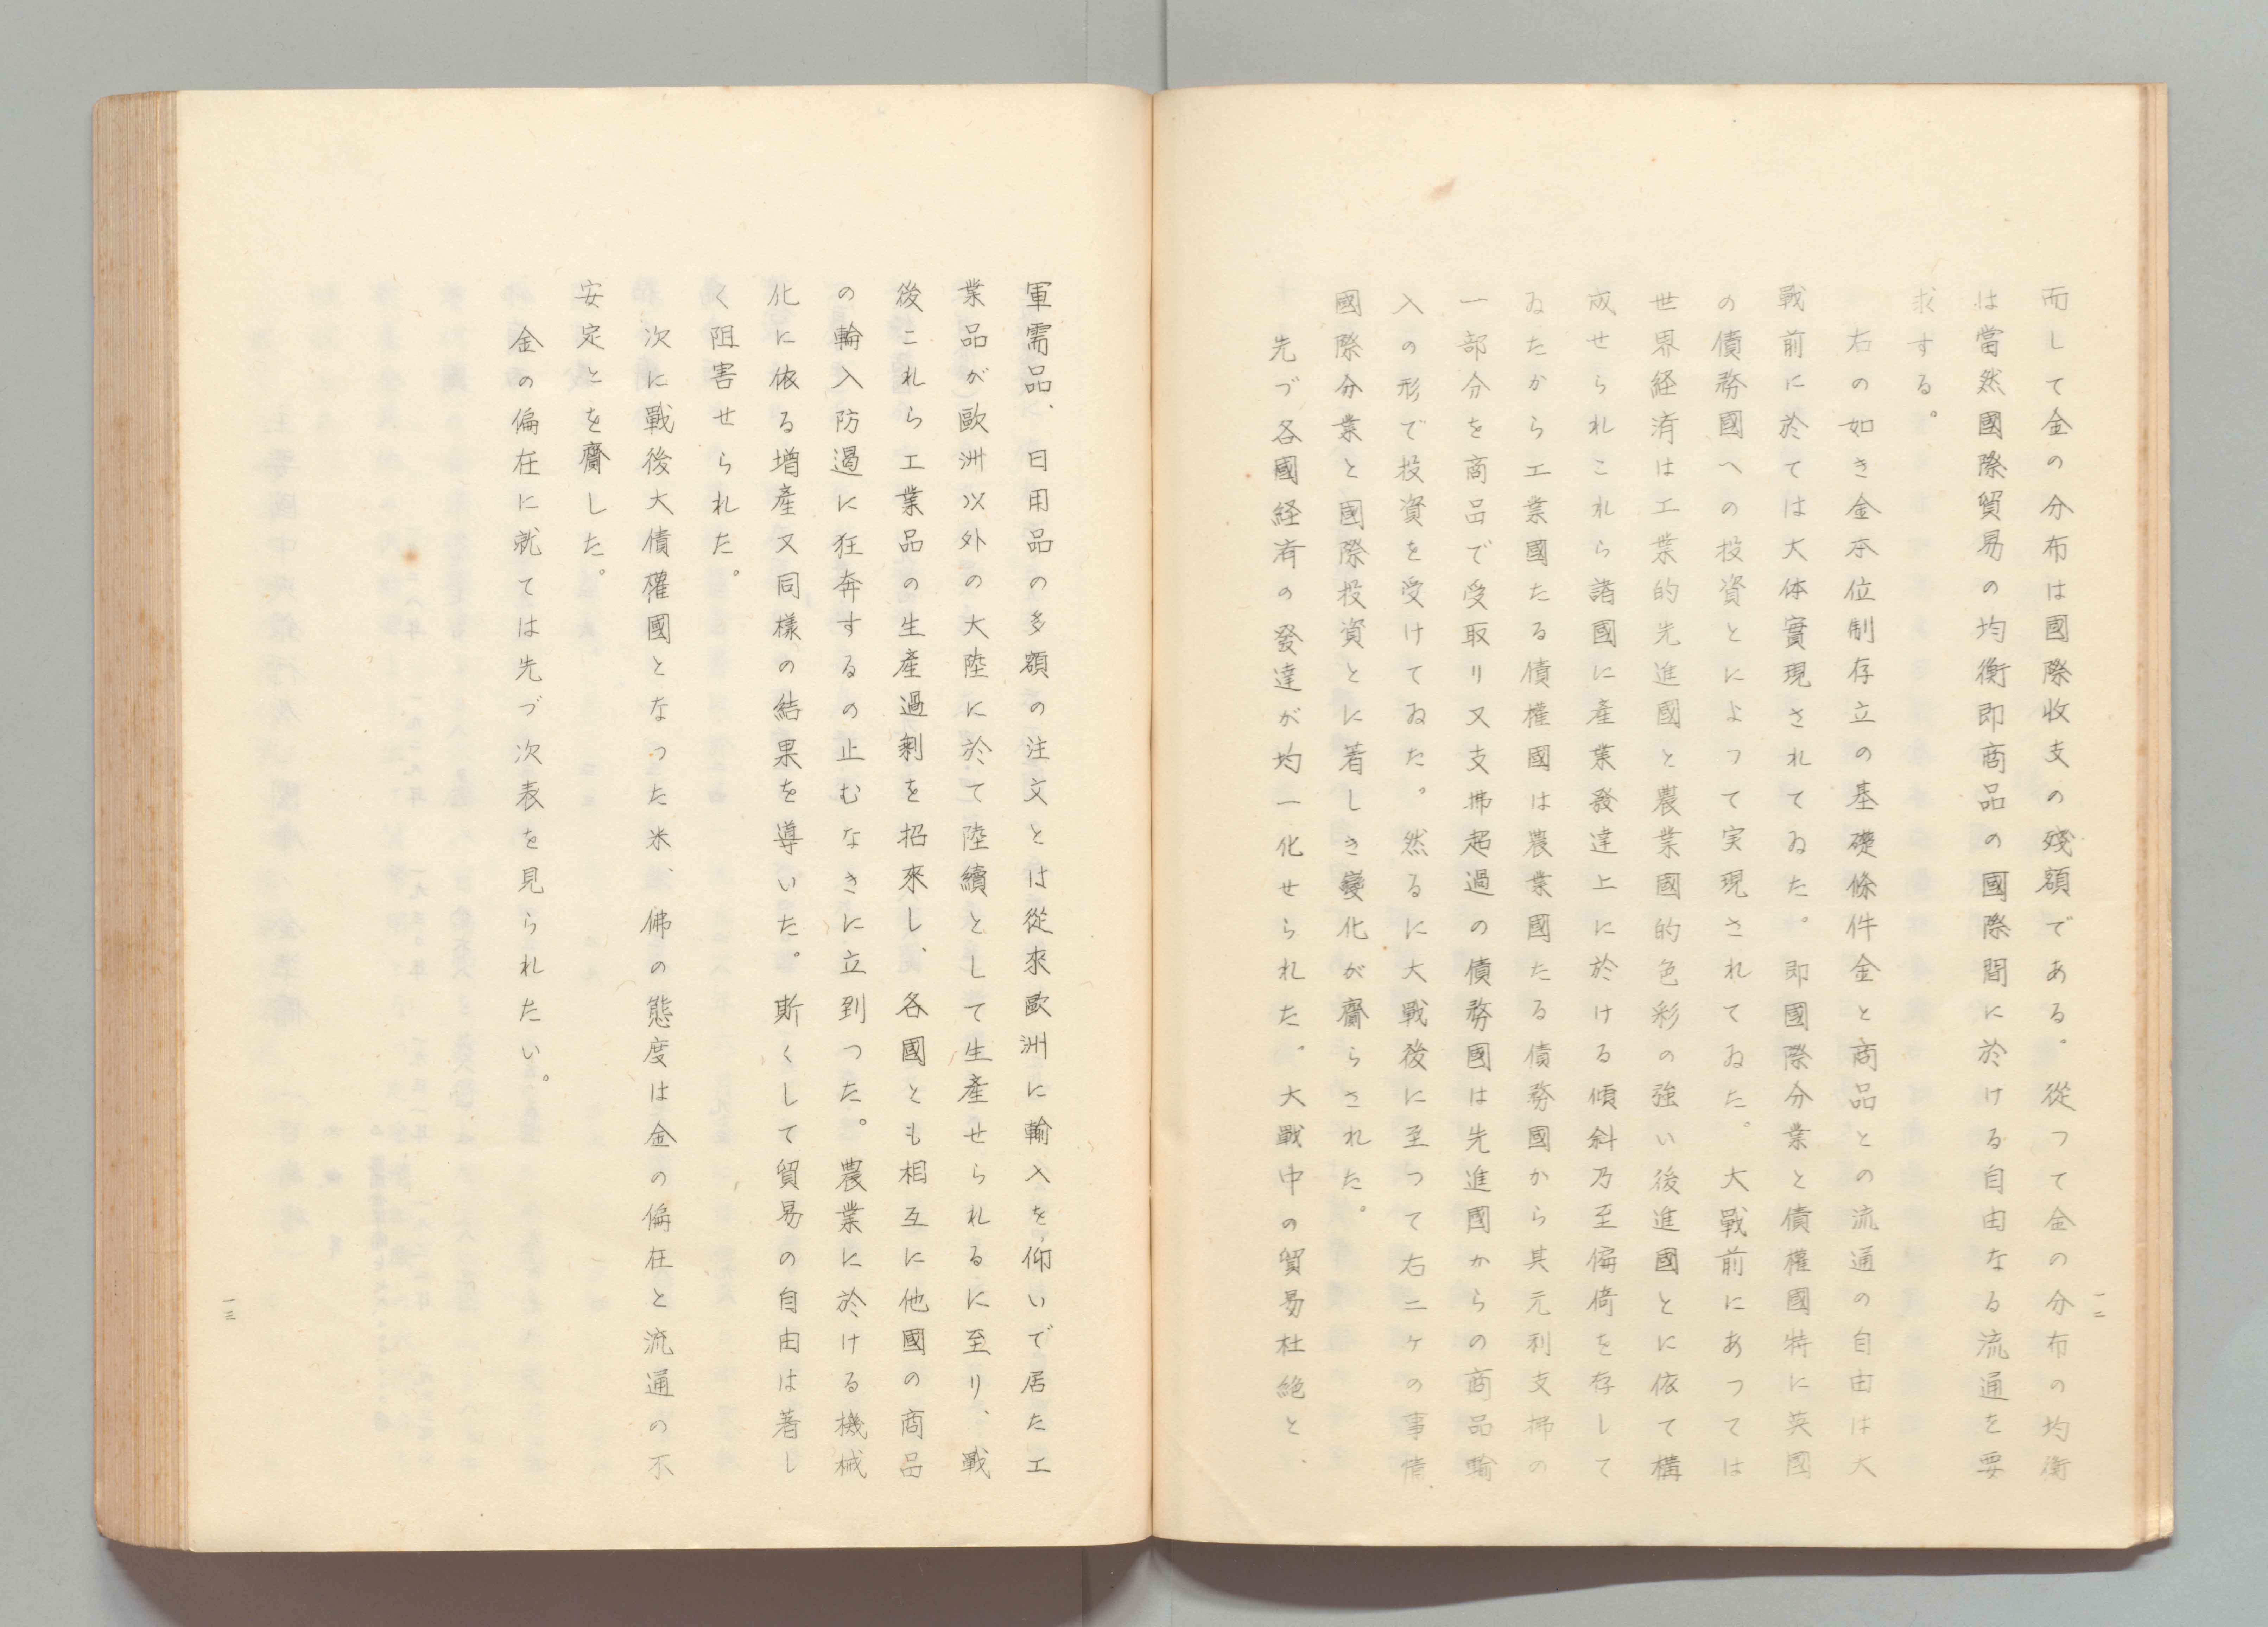 而して金の分布は國際收支の殘額である。從つて金の分布の均衡
は當然國際貿易の均衡即商品の國際間に於ける自由なる流通を要
求する。
右の如き金本位制存立の基礎條件金と商品との流通の自由は大
戰前に於ては大体實現されてゐた。即國際分業と債權國特に英國
の債務國への投資とによつて実現されてゐた。大戰前にあつては
世界経済は工業的先進國と農業國的色彩の強い後進國とに依て構
成せられこれら諸國に產業發達上に於ける傾斜乃至偏倚を存して
ゐたから工業國たる債權國は農業國たる債務國から其元利支拂の
一部分を商品で受取り又支拂超過の債務國は先進國からの商品輸
入の形で投資を受けてゐた。然るに大戰後に至つて右二ケの事情
國際分業と國際投資とに著しき變化が齎らされた。
先づ各國経済の發達が均一化せられた。大戰中の貿易杜絶と、
一二
軍需品、日用品の多額の注文とは從來歐洲に輸入を仰いで居た工
業品が歐洲以外の大陸に於て陸續として生產せられるに至り、戰
後これら工業品の生產過剩を招來し、各國とも相互に他國の商品
の輸入防遏に狂奔するの止むなきに立到つた。農業に於ける機械
化に依る增產又同樣の結果を導いた。斯くして貿易の自由は著し
く阻害せられた。
次に戰後大債權國となつた米、佛の態度は金の偏在と流通の不
安定とを齎した。
金の偏在に就ては先づ次表を見られたい。
一三